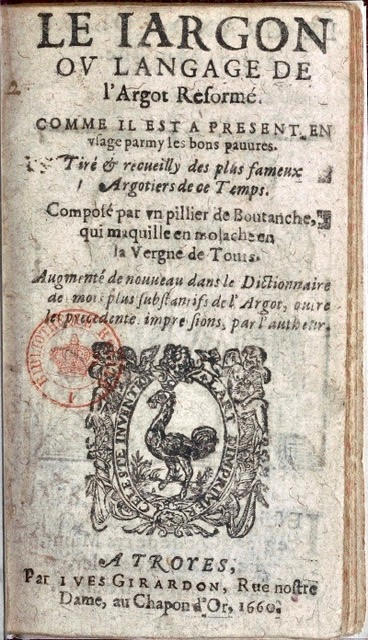 LE IARGON
OV LANGAGE DE
l'Argot Reformé.
COMME IL EST A PRESENT EN
vsage parmy les bons pauures.
Tiré & recueilly des plus fameux
Argotiers de ce Temps.
Composé par vn pillier de Boutanche,
qui maquille en molache en
la Vergne de Tours.
Augmenté de nouveau dans le Dictionnaire
de mots plus substantifs de l'Argot, outre
les precedente impressions, par l'autheur.
A TROYES,
Par IVES GIRARDON, Rue nostre
Dame, au Chapon d'Or, 1660.